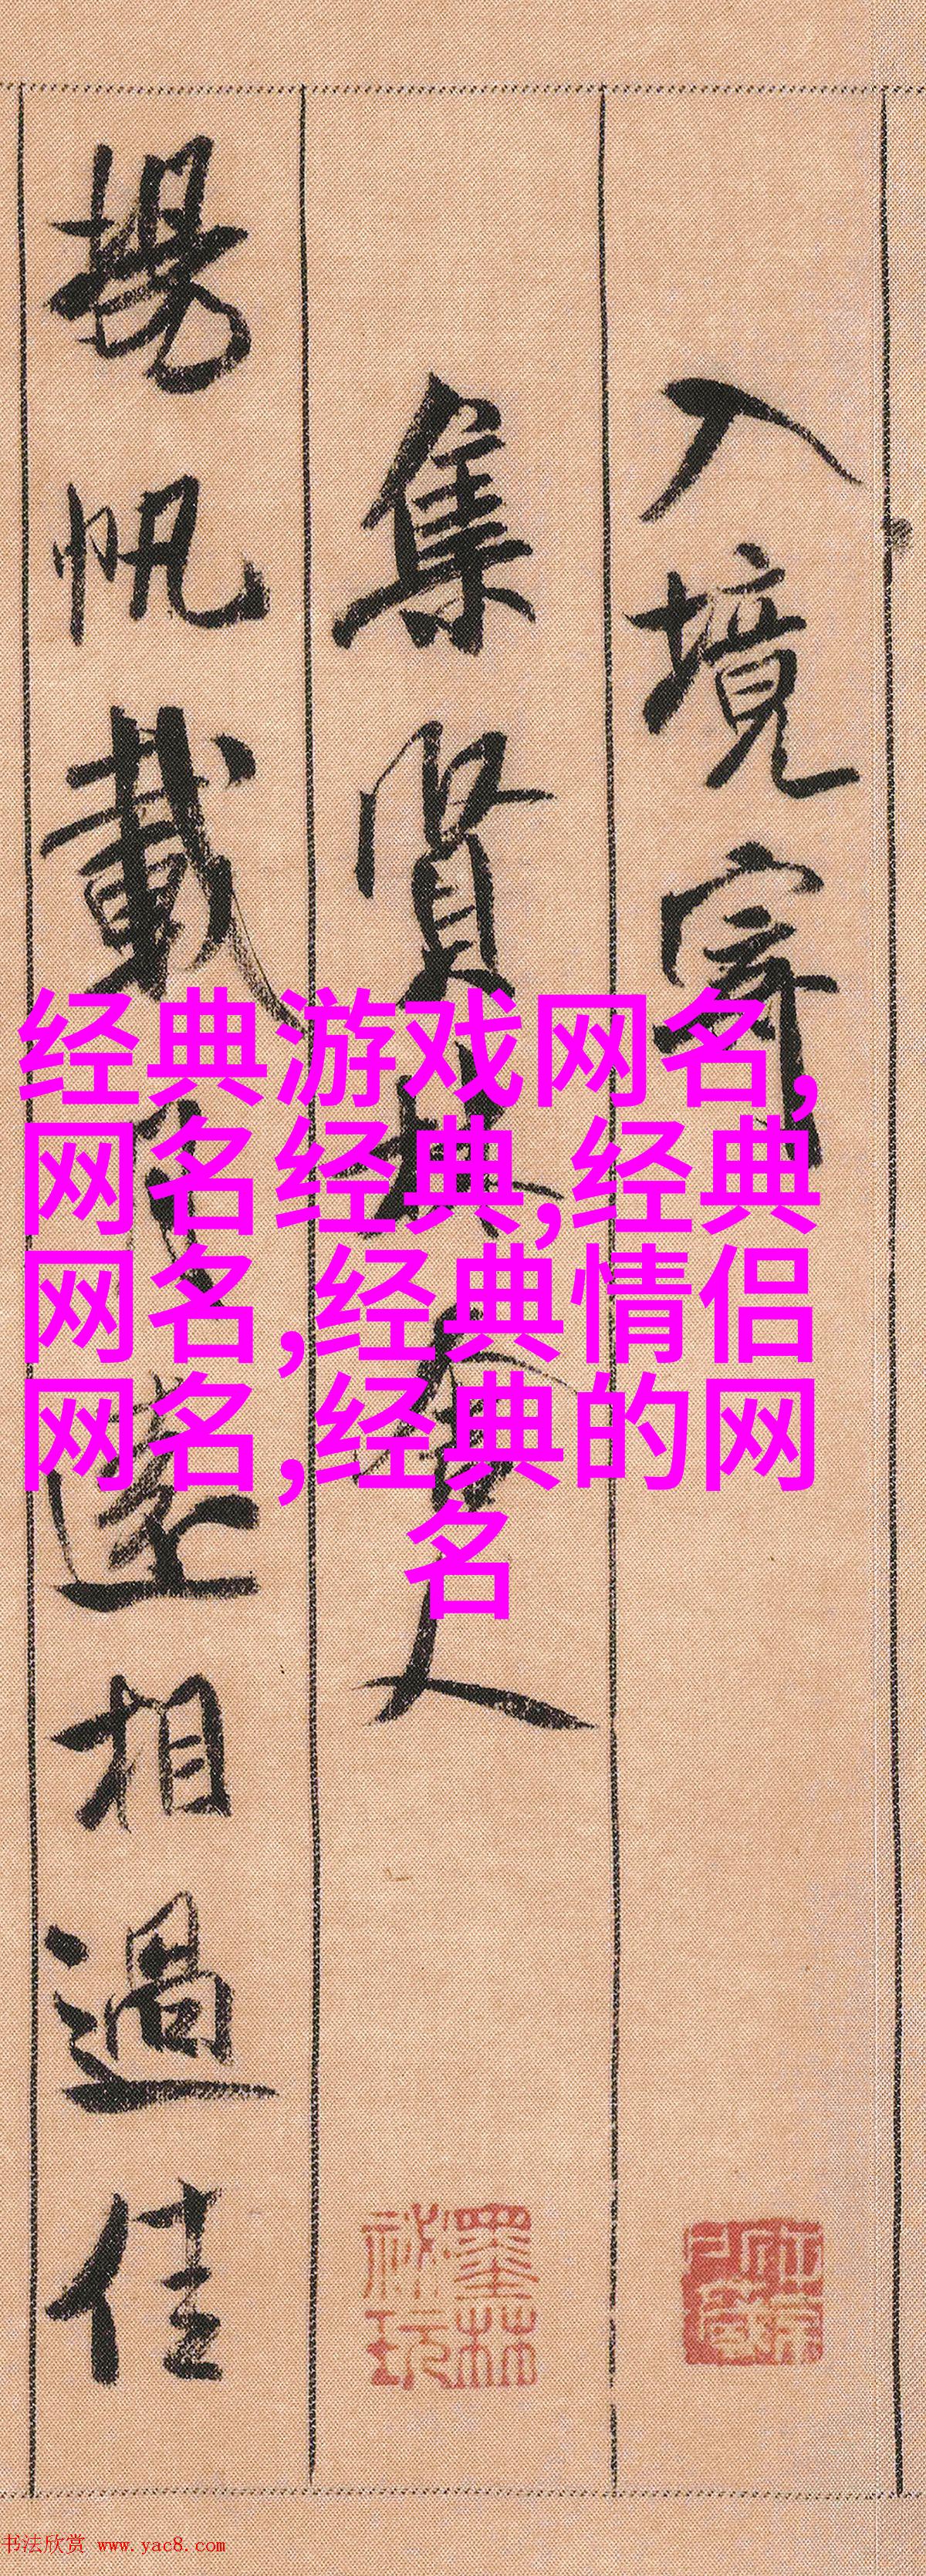 入境寄
集賢林舍人
揚帆載月遠相過佳
经典游戏网名,
网名经典,经典
网名,经典情侣
网名,经典的网
名
墨林
祕玩
书法欣赏 www.yac8.com